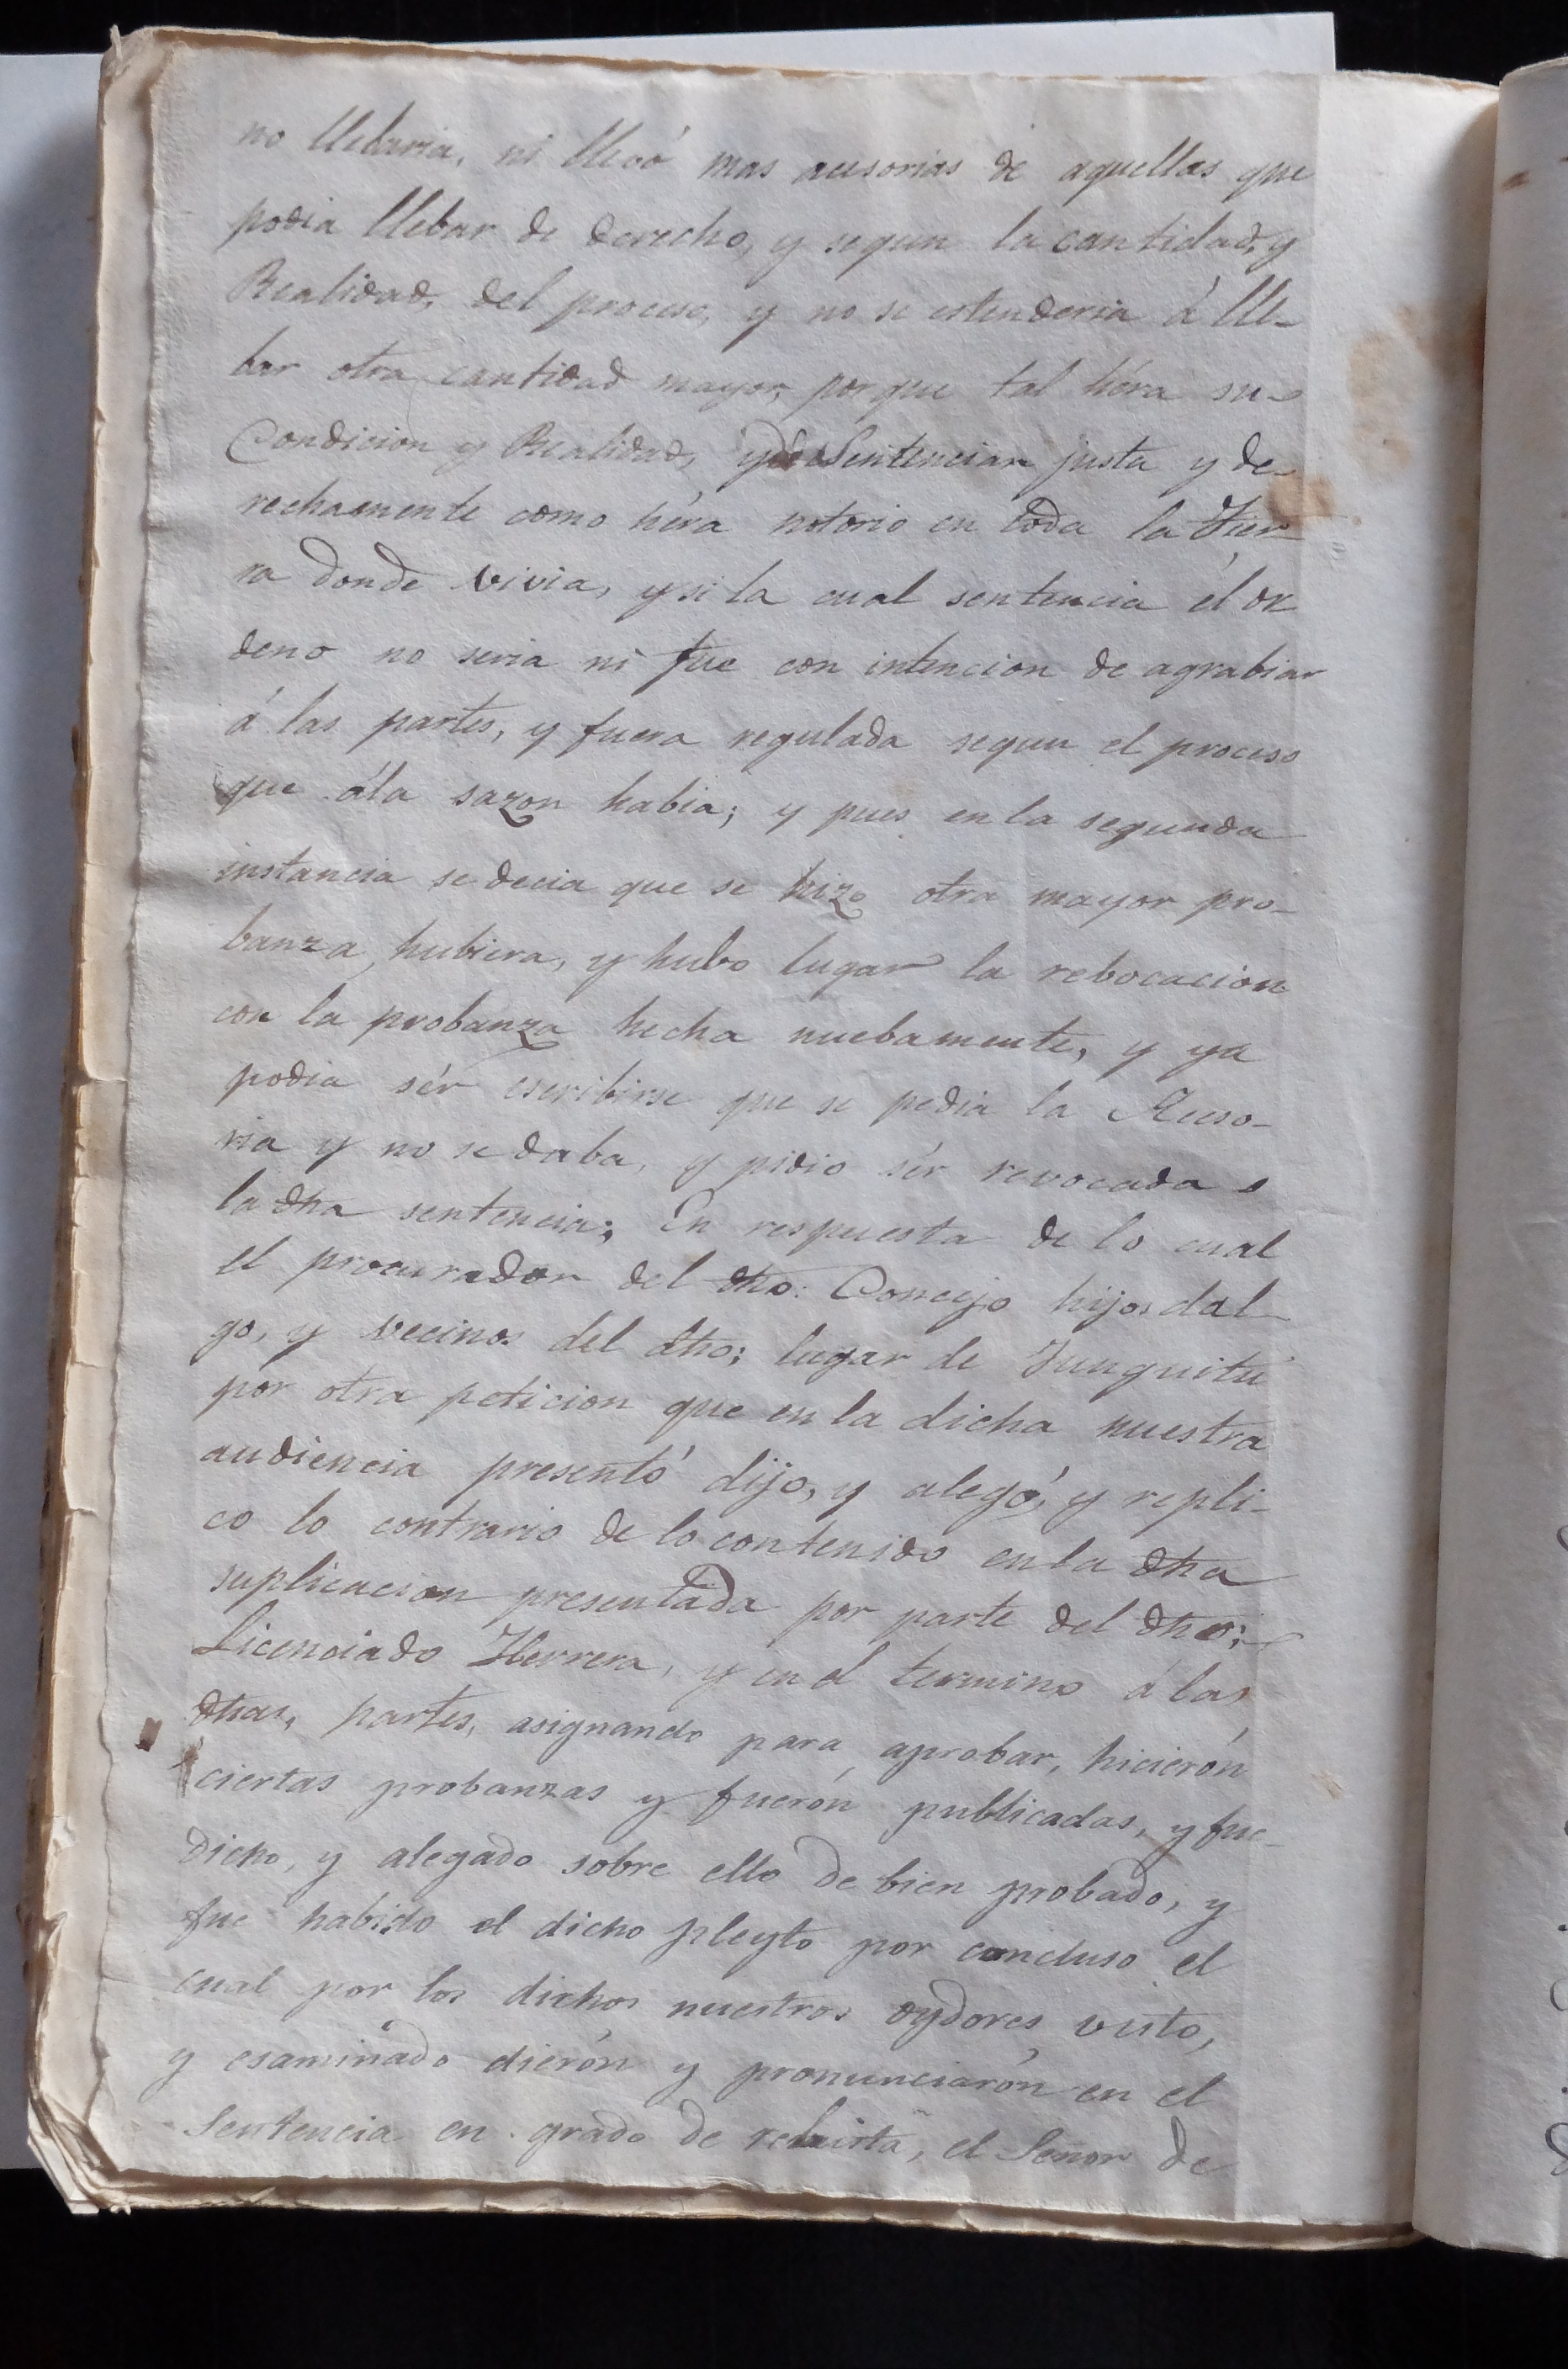 no llebaria, ni llevó mas acesorias de aquellas que
podia llebar de derecho, y segun la cantidad, y
Realidad, del proceso, y no se estenderia á lle-
bar otra cantidad mayor, porque tal héra su
Condicion y Realidad, y de Sentenciar justa y de-
rechamente como héra notorio en toda la Tier-
ra donde vivia, y si la cual sentencia él or
deno no seria ni fue con intencion de agrabiar
á las partes, y fuera regulada segun el proceso
que ála sazon habia; y pues en la segunda
instancia se decia que se hizo otra mayor pro-
banza hubiera, y hubo lugar la rebocacion
con la probanza hecha nuebamente, y ya
podia sér escribirse que se pedia la Aceso-
ria y no se daba, y pidio sér revocada
la dha sentencia; En respuesta de lo cual
el procurador del dho: Concejo hijos dal
go, y vecinos del dho: lugar de Junguitú
por otra peticion que en la dicha nuestra
audiencia presentó dijo, y alegó, y repli-
co lo contrario de lo contenido en la dha
suplicacion presentada por parte del dho:
Licenciado Herrera, y en el termino á las
dhas, partes, asignando para aprobar, hiciерón
ciertas probanzas y fuerón publicadas, y fue
dicho, y alegado sobre ello de bien probado, y
fue habido el dicho pleyto por concluso el
cual por los dichos nuestros oydores visto,
y esaminado dierón y pronunciarón en el
Sentencia en grado de rebista, el Señor de